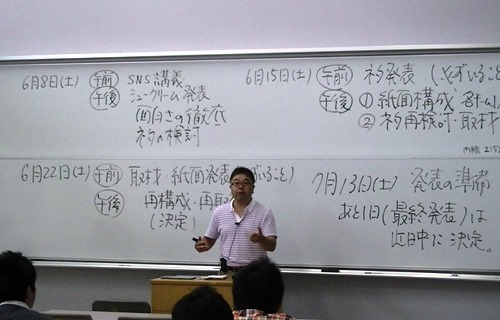 6月8日(土) 午前 SNS講義
午後 シュークリーム発表
面白さの徹底
ネタの検討
6月15日(土) 午前 ネタ発表 (必ずいること
午後 ① 紙面構成
② ネタ再検討・取材
6月22日(土) 午前 取材・紙面発表 ずいること)
午後 再構成・再取
(決定)
7月13日(土) 発表の準備
あと1日(最終発表)は
近日中に決定。